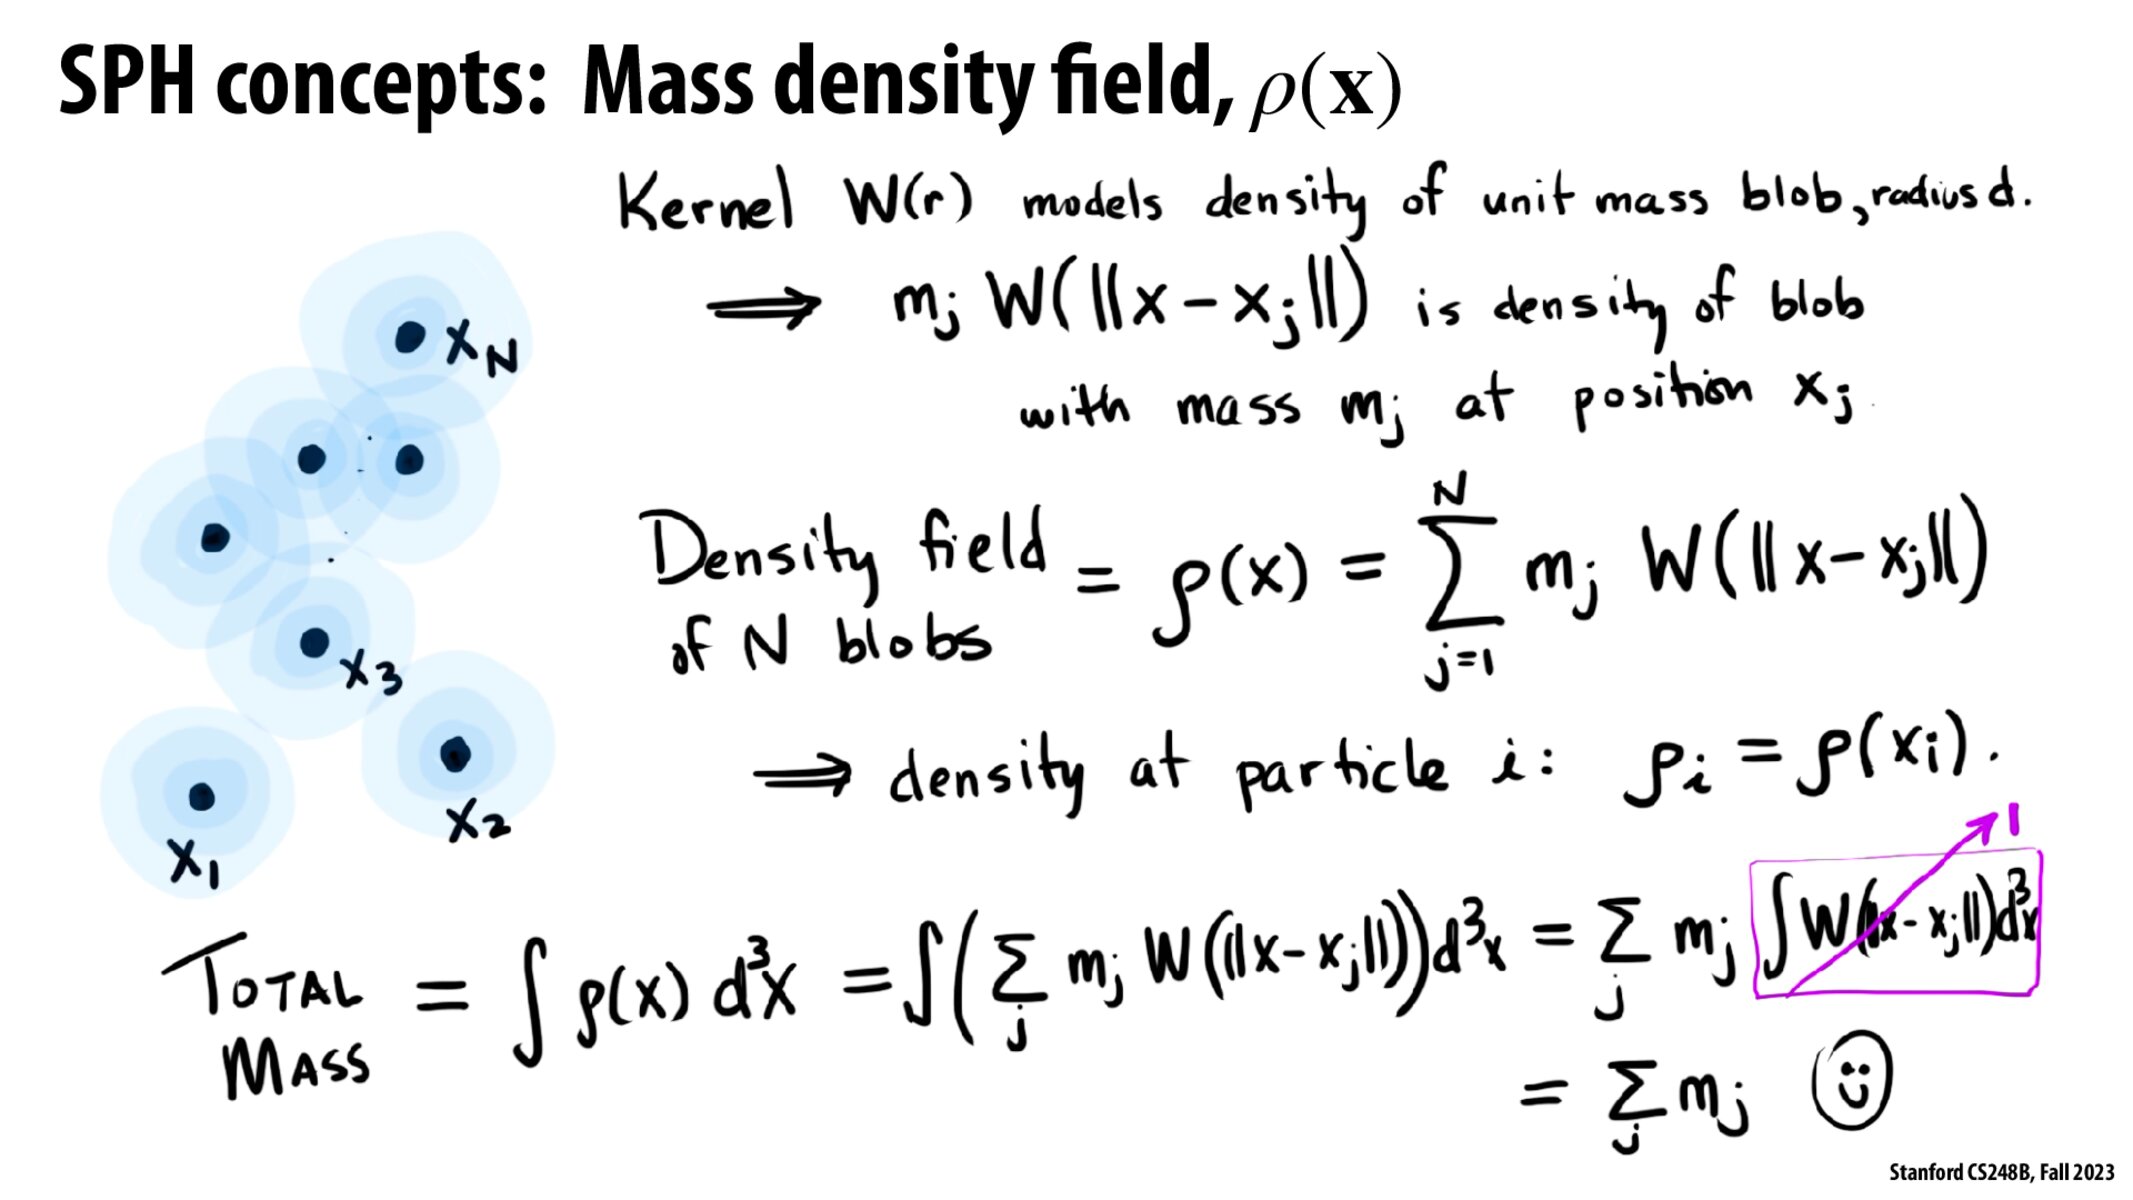 SPH concepts: Mass density field, ρ(x)
Kernel W(r) models density of unit mass blob, radius d.
⟹ mⱼ W(‖x − xⱼ‖) is density of blob
with mass mⱼ at position xⱼ.
x_N
x₃
x₂
x₁
Density field of N blobs = ρ(x) = ∑_{j=1}^{N} mⱼ W(‖x − xⱼ‖)
⟹ density at particle i: ρᵢ = ρ(xᵢ).
1
TOTAL MASS = ∫ ρ(x) d³x = ∫(∑ⱼ mⱼ W(‖x − xⱼ‖)) d³x = ∑ⱼ mⱼ ∫W(‖x − xⱼ‖)d³x
= ∑ⱼ mⱼ
Stanford CS248B, Fall 2023